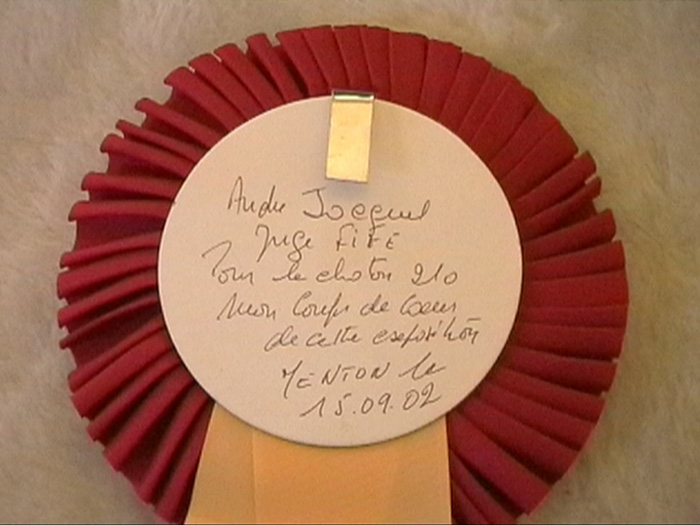 André Jocquel
Juge FIFE
Pour le chaton 210
Mon Coup de Coeur
de cette exposition
MENTON le
15.09.02